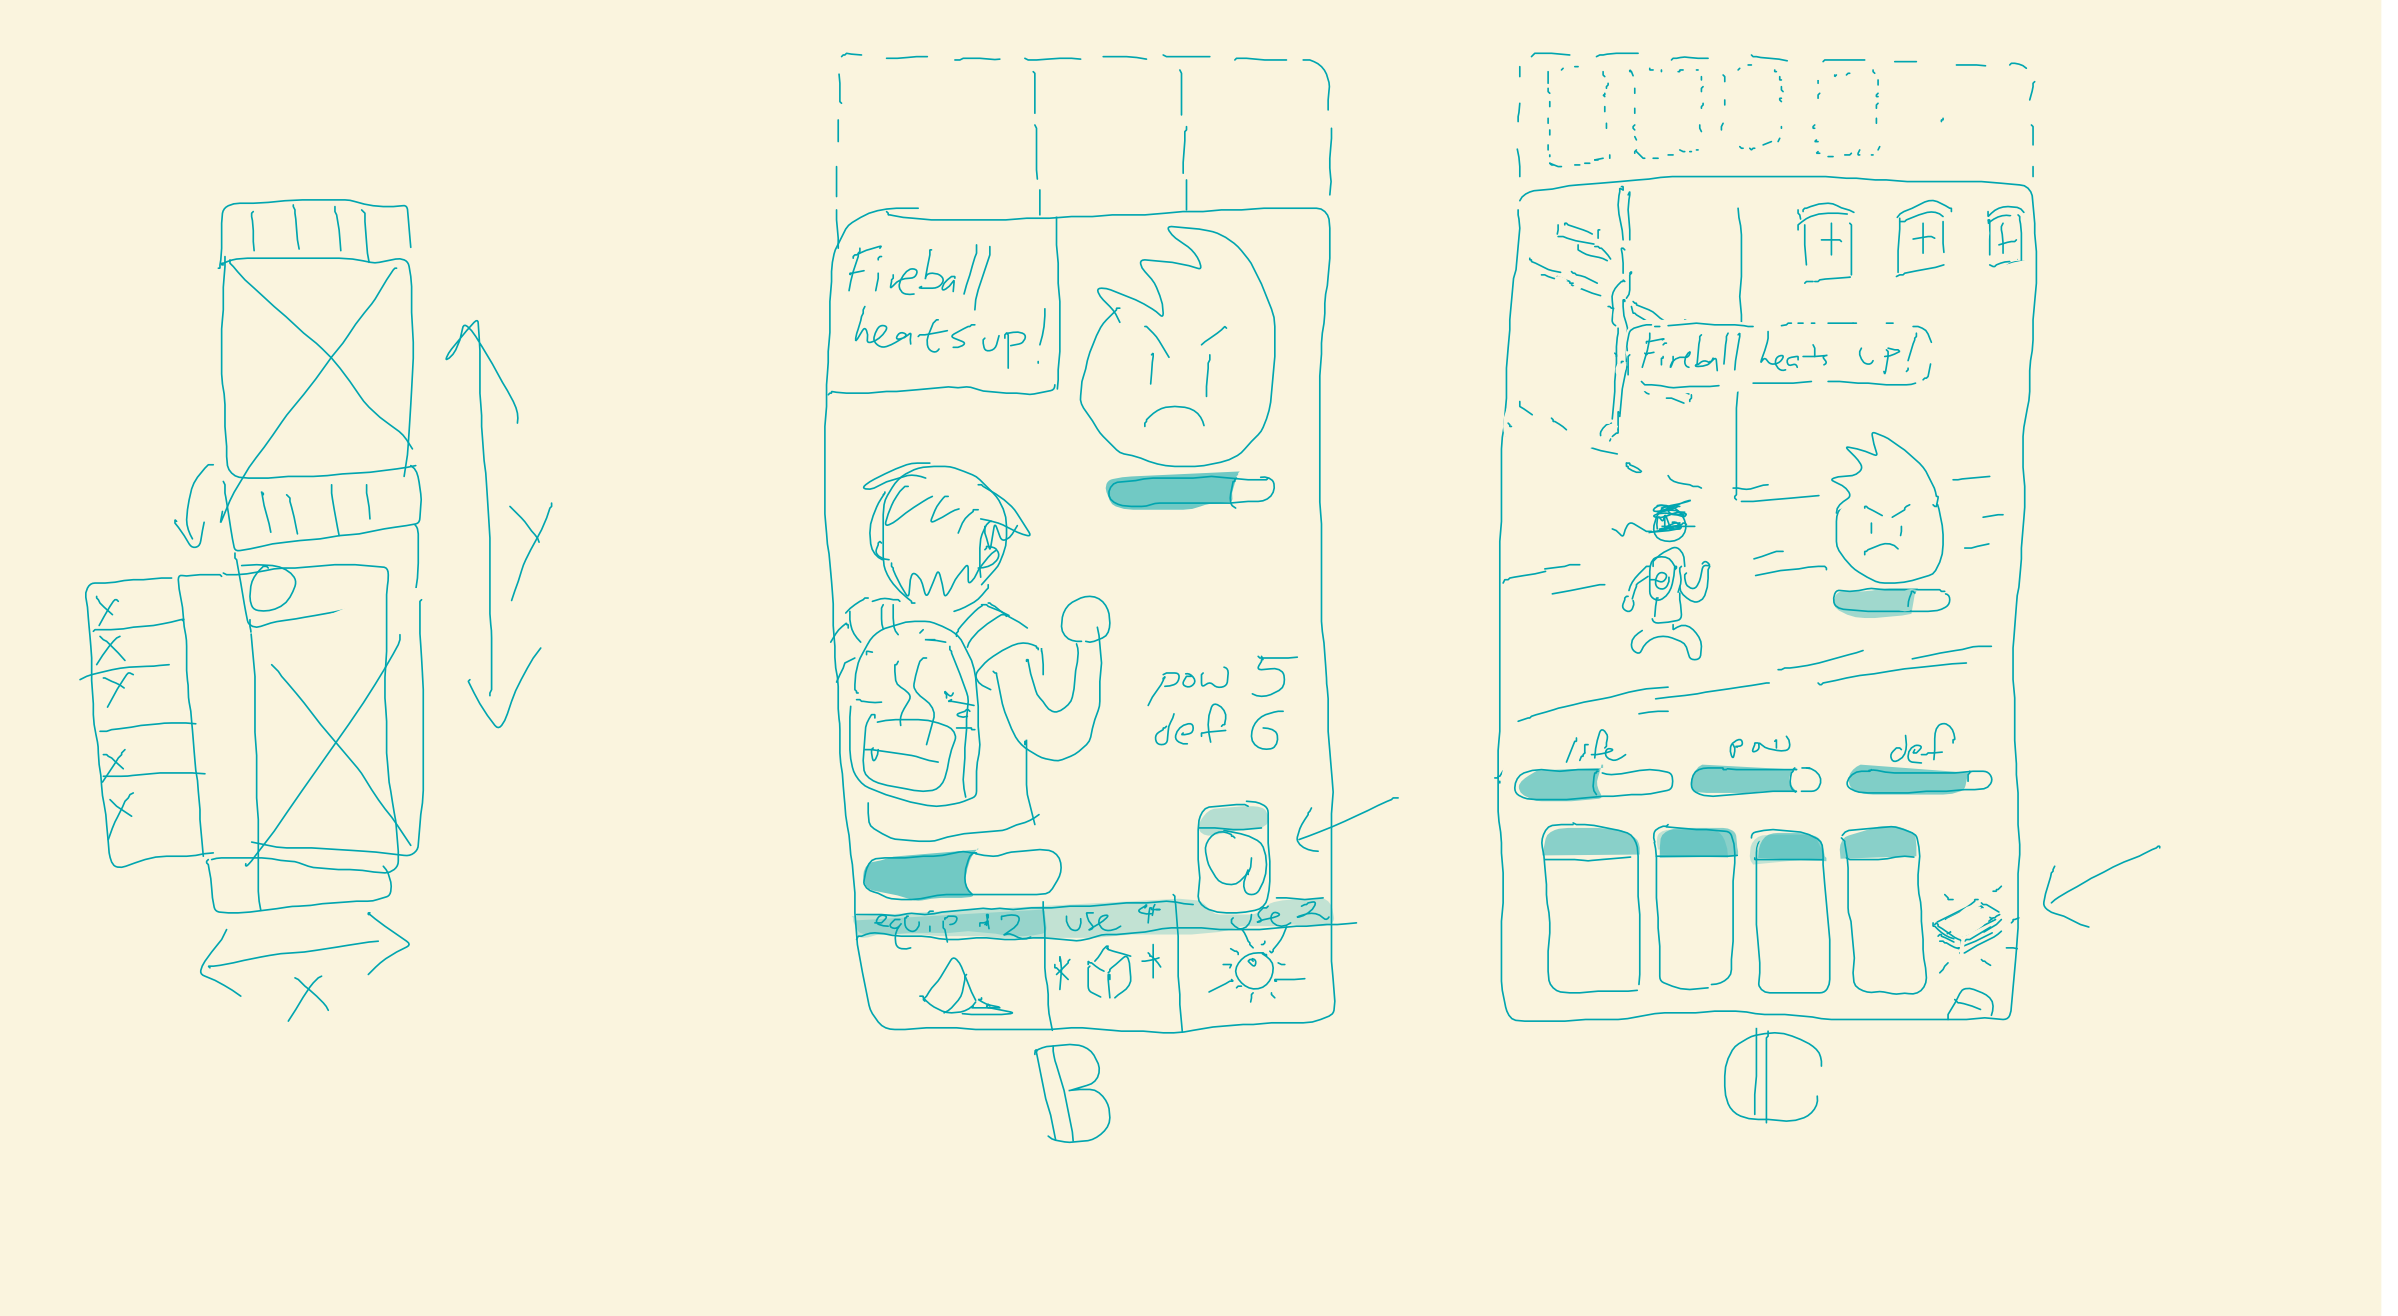 Y
X
Fireball
heats up!
pow 5
def 6
equip +2
use 4
use 2
B
Fireball heats up!
life
pow
def
C